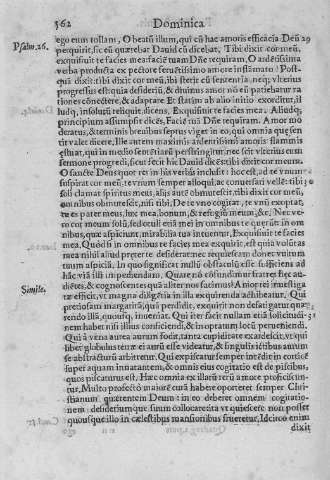 362 Dominica
Psalm.26.
ego eum tollam, O beatū illum, qui cū hac amoris efficacia Deū 29
perquirit, sic eū quærebat Dauid cū dicebat, Tibi dixit cor meū,
exquisiuit te facies mea: faciē tuam Dñe requiram. O ardētissima
verba producta ex pectore feruētissimo amore inflammato! Post-
quā dixit: tibi dixit cor meū, cessabat oris sententia: neq; vlterius
progressus est: quia desideriū, & diuinus amor nō eū patiebatur ra
tiones cōnectere, & adaptare. Et statim ab alio initio exorditur, il
ludq; insolutū reliquit, dicens, Exquisiuit te facies mea. Aliudq;
principium assumpsit dicēs, Faciē tuā Dñe requiram. Amor mo
deratus, & terminis breuibus septus viget in eo, qui omnia quæ sen
tit valet dicere, Ille autem maximis ardentissimi amoris flammis
æstuat, qui in modio sententiarū perstringitur: nec scit vlterius cum
sermone progredi, sicut fecit hic Dauid dicēs: tibi dixit cor meum.
O sancte Deus quot res in his verbis includit: hoc est, ad te vnum
suspirat cor meū, te vnum semper alloqui, ac conuersari vellē: tibi 30
soli clamat spiritus meus, alijs autē obmutescit, tibi dixit cor meū,
omnibus obmutescit, nisi tibi. De te vno cogitat, te vnū exoptat,
tu es pater meus, lux mea, bonum, & refugiū meum, &c. Nec ve-
ro cor meum solū, sed oculi etiā mei in omnibus te quærūt in om
nibus, quæ aspiciunt, mirabilia tua intuentur, Exquisiuit te facies
mea. Quòd si in omnibus te facies mea exquirit, est quia voluptas
mea nihil aliud præter te desiderat: nec requiescam donec vultum
tuum aspiciā, in quo significat nullū obstaculū esse sufficiens ad
hæc vlā illi impediendam. Quare nō cōfundimur fratres hæc au-
Simile.
diētes, & cognoscentes quā aliter nos fatimus? Amor rei inuestiga
tæ efficit, vt magna diligētia in illa exquirenda adhibeatur. Qui
pretiosam margaritā, quā perdidit, exquirit non defatigatur quæ-
rendo illā, quousq; inueniat. Qui iter facit nullam etiā sollicitudi- 31
nem habet nisi illius conficiendi, & in optatum locū perueniendi.
Qui à vena aurea aurum fodit, tanta cupiditate exardescit, vt qui
libet globulus terræ ei auri esse videatur, & singulis ictibus aurum
se abstracturū arbitratur. Qui expiscatur semper intēdit in cortice
super aquam innatantem, & omnis eius cogitatio est de piscibus,
quos piscaturus est. Hæc omnia ex illarū rerū amore proficiscun-
tur. Multo profectò maiorē curā habere oporteret semper Chri-
stianum quærentem Deum: in eo deberet omnem cogitatio-
nem desideriumque suum collocare: ita vt quiescere non posset
quousque illo in cælestibus mansionibus frueretur, Idcirco enim
dixit